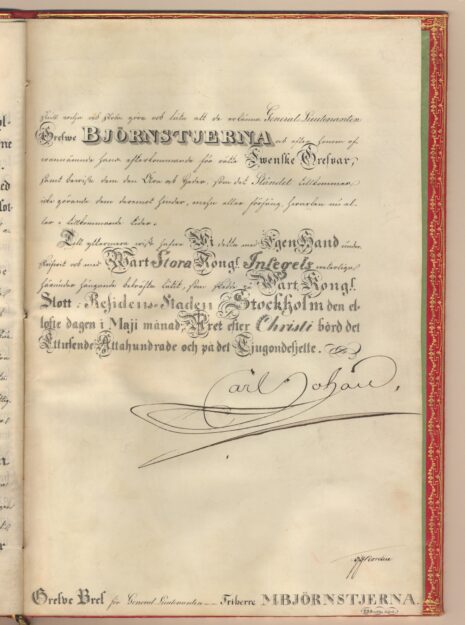 göra och låta att de erkänna General-Lieutenanten
Grefwe BJÖRNSTJERNA och efter honom af
hans efterkommande för rätta Swenske Grefvar,
samt bewisa dem den Ähra och Heder, som det Ståndet tillkommer,
icke görande dem deremot hinder, mehn eller förfång, härutinnan nu el-
ler i tillkommande tider.
Till yttermera wisso hafwe Wi detta med Egen Hand under-
skrifwit och med Wårt Stora Kongl. Insegel
härunder hängande bekräfta låtit, som skedde Wårt Kongl.
Slott Residens-Staden Stockholm den el-
lofte dagen i Maji månad, Året efter Christi börd det
Ettusende Åttahundrade och på det Tjugondesjette.
Carl Johan.
Grefve Bref för General Lieutenanten Friherre M BJÖRNSTJERNA.